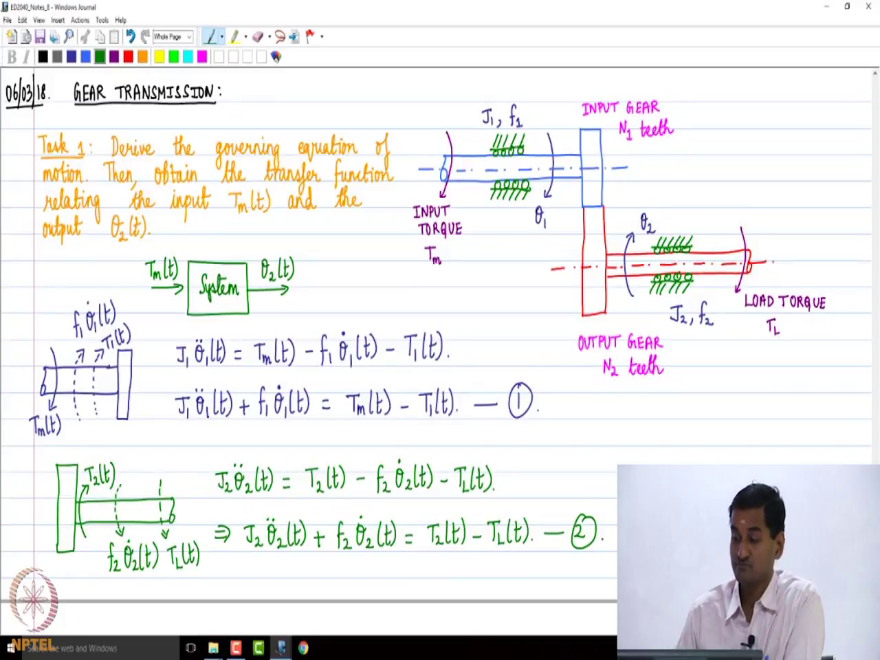 ED2040_Notes_8 - Windows Journal
File Edit View Insert Actions Tools Help
Whole Page
B I
06/03/18. GEAR TRANSMISSION:
Task 1: Derive the governing equation of
motion. Then, obtain the transfer function
relating the input Tm(t) and the
output θ2(t).
Tm(t) System θ2(t)
J1, f1
INPUT GEAR
N1 teeth
INPUT
TORQUE
Tm
θ1
θ2
J2, f2
LOAD TORQUE
TL
OUTPUT GEAR
N2 teeth
f1θ̇1(t)
T1(t)
Tm(t)
J1θ̈1(t) = Tm(t) - f1θ̇1(t) - T1(t).
J1θ̈1(t) + f1θ̇1(t) = Tm(t) - T1(t). — ①.
T2(t)
f2θ̇2(t) TL(t)
J2θ̈2(t) = T2(t) - f2θ̇2(t) - TL(t).
⇒ J2θ̈2(t) + f2θ̇2(t) = T2(t) - TL(t). — ②.
NPTEL
the web and Windows